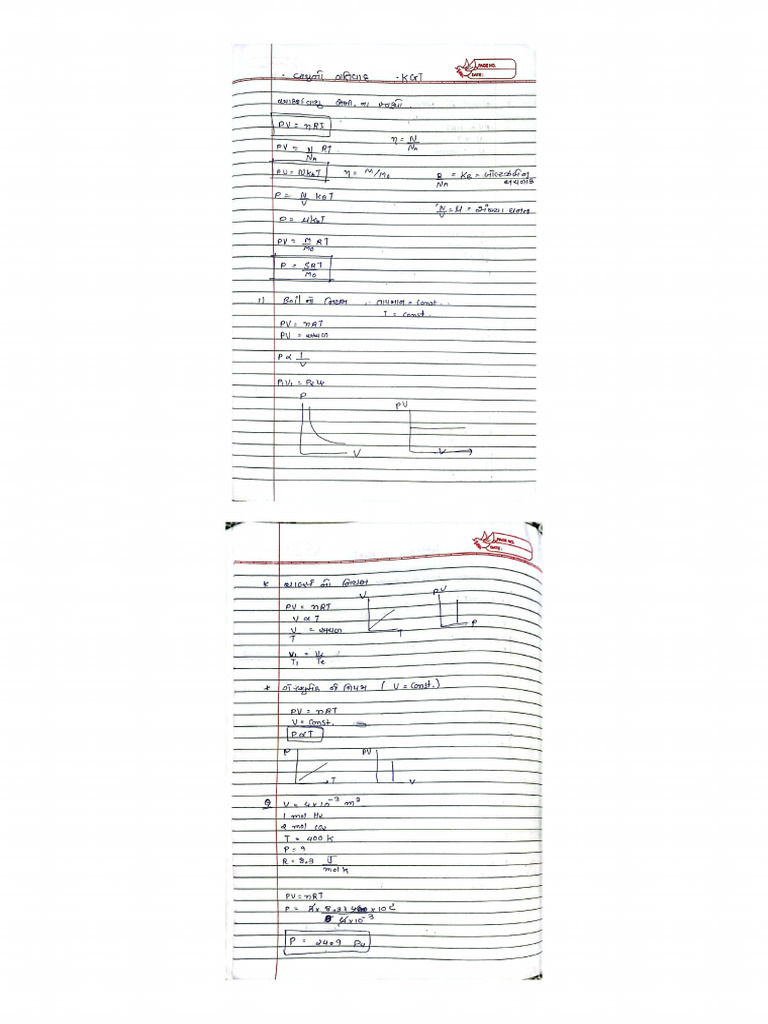 PAGE NO.
DATE:
• વાયુનો ગતિવાદ • KGT
આદર્શવાયુ અવ. ના
PV = nRT
n = N/NA
PV = N/NA RT
PV = NkBT n = M/Mo R/NA = KB = બોલ્ટઝમેનનો અચળાંક
P = N/V kBT
N/V = μ = સંખ્યા ઘનતા
P = μkBT
PV = M/Mo RT
P = ρRT/Mo
1) નો નિયમ તાપમાન = Const.
T = const.
PV = nRT
PV = અચળ
P ∝ 1/V
P1V1 = P2V2
P PV
V V
PAGE NO.
DATE:
* ચાર્લ્સ નો નિયમ
V PV
PV = nRT
V ∝ T
T P
V/T = અચળ
V1/T1 = V2/T2
* નો નિયમ ( V = Const.)
PV = nRT
V = Const.
P∝T
P PV
T V
Q V = 4×10⁻³ m³
1 mol H2
2 mol CO2
T = 400 K
P = ?
R = 8.3 J/mol K
PV = nRT
P = 8.3 × 400 × 10²
4×10⁻³
P = 24.9 Pa